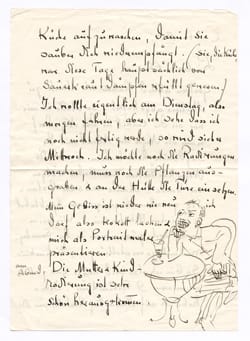 Küche aufzuwaschen, damit sie
sauber Dich wiederempfängt. (sie, die Küche,
war diese Tage hauptsächlich von
Sauerkraut Dampfen erfüllt gewesen)
Ich wollte eigentlich am Dienstag, also
morgen fahren, aber ich sehe dass ich
noch nicht fertig werde, so wird sicher
Mittwoch. Ich möchte noch die Radierungen
machen, muss noch die Pflanzen aus-
graben & an die Hütte die Türe einsehen.
Mein Gebiss ist wieder wie neu, ich
darf also kokett lachen &
mich als Portraitmaler
präsentieren.
Die Mutter & Kind
radierung ist sehr
schön herausgekommen.